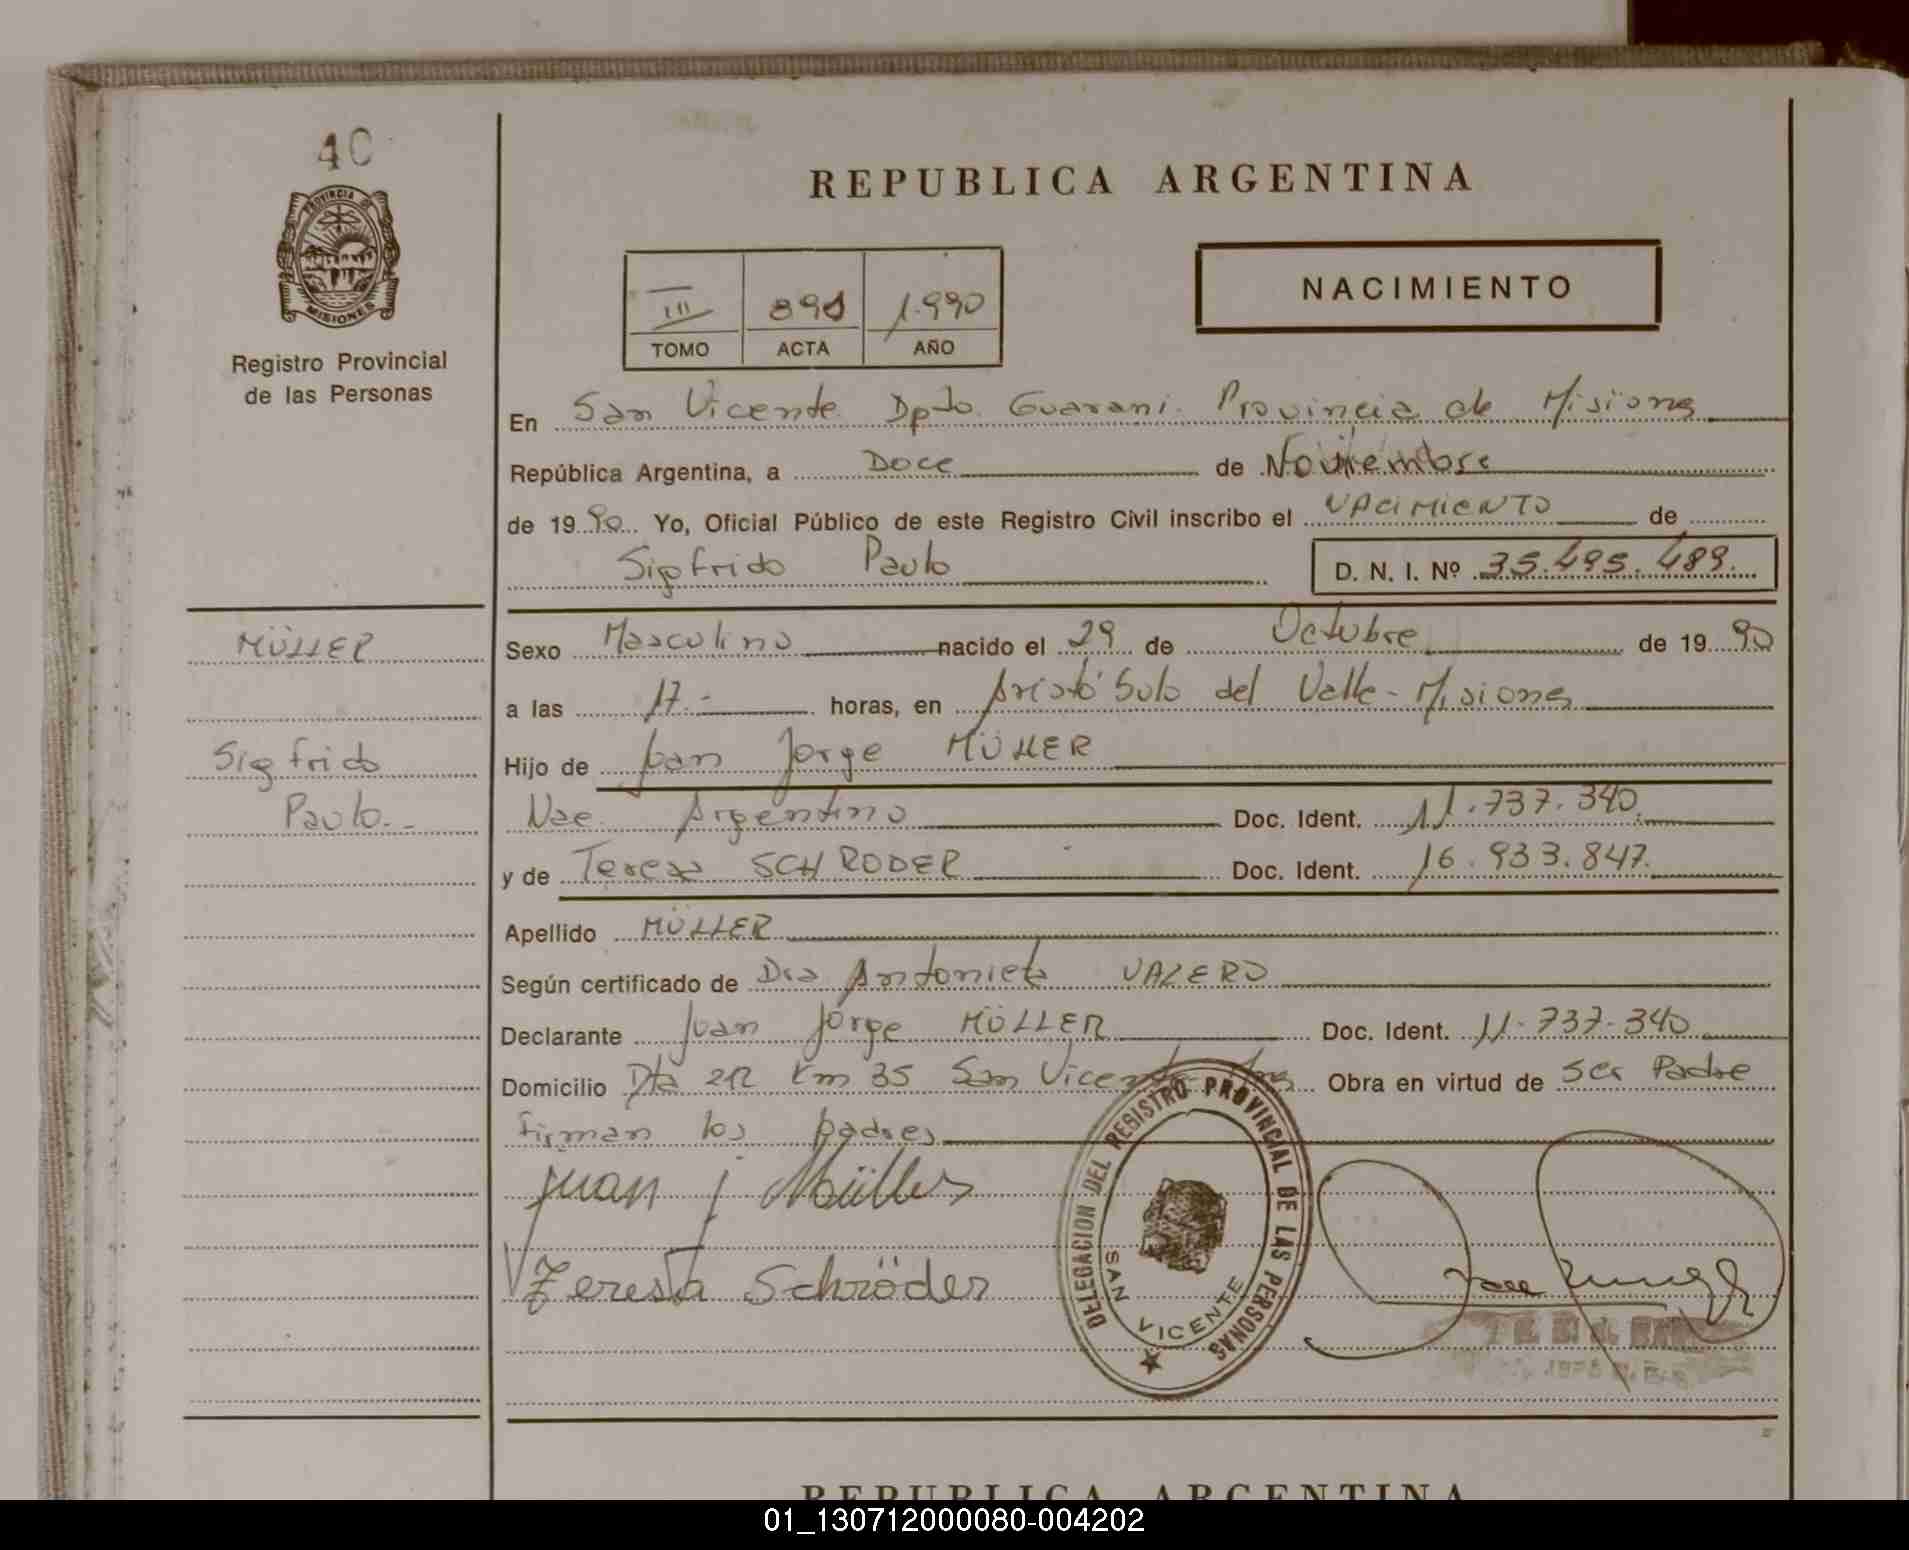 40
PROVINCIA DE
MISIONES
Registro Provincial
de las Personas
REPUBLICA ARGENTINA
III 891 1.990
TOMO ACTA AÑO
NACIMIENTO
En San Vicente Dpto. Guarani. Provincia de Misiones
República Argentina, a Doce de Noviembre
de 1990 Yo, Oficial Público de este Registro Civil inscribo el NACIMIENTO de
Sigfrido Paulo D. N. I. Nº 35.495.489.
MÜLLER
Sigfrido
Paulo.-
Sexo Masculino nacido el 29 de Octubre de 1990
a las 17.- horas, en Aristóbulo del Valle - Misiones
Hijo de Juan Jorge MÜLLER
Nac. Argentino Doc. Ident. 11.737.340.
y de Teresa SCHRODER Doc. Ident. 16.933.847.
Apellido MÜLLER
Según certificado de Dra Antonieta VALERO
Declarante Juan Jorge MÜLLER Doc. Ident. 11.737.340
Domicilio Km 35 San Vicente Obra en virtud de ser Padre
firman los padres
Juan J Müller
Teresa Schröder
DELEGACION DEL REGISTRO PROVINCIAL DE LAS PERSONAS
SAN VICENTE
REPUBLICA ARGENTINA
01_130712000080-004202